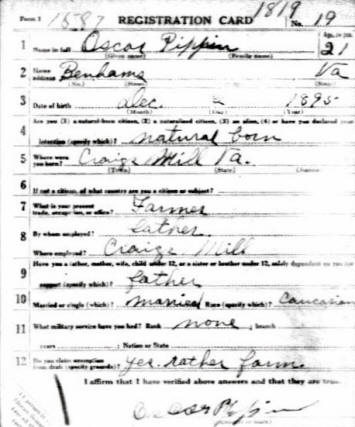 Form 1 1587 REGISTRATION CARD 1819 No. 19
1 Name in full Oscar Pippin Age, in yrs. 21
(Given name) (Family name)
2 Home address Benhams Va
(No.) (Street) (State)
3 Date of birth Dec. 1895
(Month) (Day) (Year)
Are you (1) a natural-born citizen, (2) a naturalized citizen, (3) an alien, (4) or have you declared your
4 intention (specify which)? natural born
5 Where were you born? Craigs Mill Va.
(Town) (State) (Nation)
6 If not a citizen, of what country are you a citizen or subject?
7 What is your present trade, occupation, or office? Farmer
8 By whom employed? Father
Where employed? Craige Mill
Have you a father, mother, wife, child under 12, or a sister or brother under 12, solely dependent on you for
9 support (specify which)? father
10 Married or single (which)? married Race (specify which)? Caucasian
11 What military service have you had? Rank none ; branch
years ; Nation or State
12 Do you claim exemption from draft (specify grounds)? yes. farm.
I affirm that I have verified above answers and that they are true.
Oscar Pippin